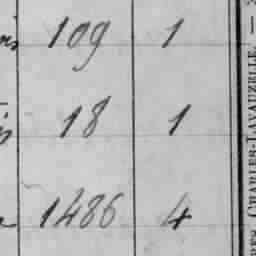 109 1
18 1
1486 4
CHARLES-LAVAUZELLE. —